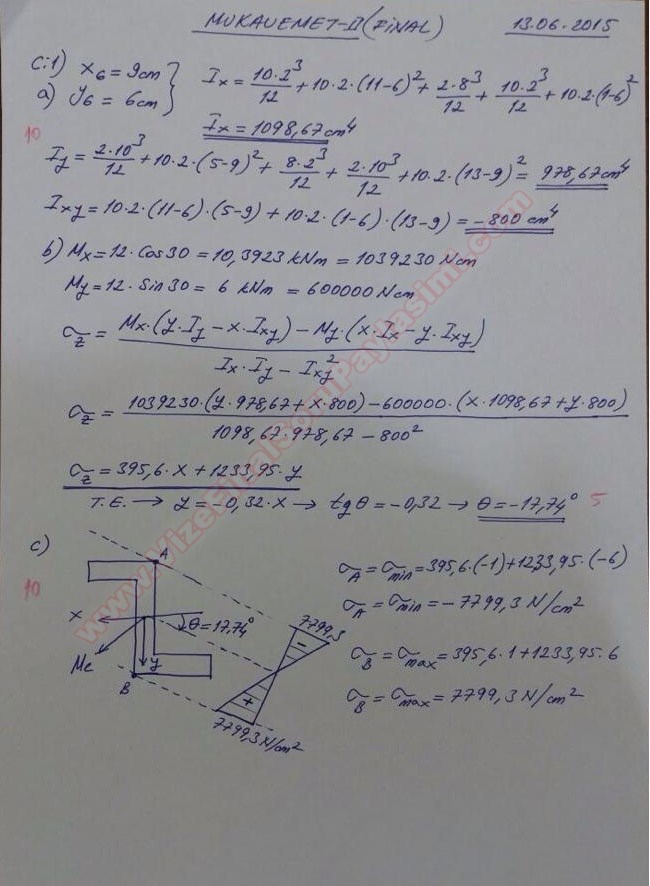 MUKAVEMET-II (FİNAL) 13.06.2015
C:1) x_G = 9cm
a) y_G = 6cm } I_x = 10.2³/12 + 10.2.(11-6)² + 2.8³/12 + 10.2³/12 + 10.2.(1-6)²
10
I_x = 1098,67cm⁴
I_y = 2.10³/12 + 10.2.(5-9)² + 8.2³/12 + 2.10³/12 + 10.2.(13-9)² = 978,67cm⁴
I_xy = 10.2.(11-6).(5-9) + 10.2.(1-6).(13-9) = -800 cm⁴
b) M_x = 12.Cos30 = 10,3923 kNm = 1039230 Ncm
M_y = 12.Sin30 = 6 kNm = 600000 Ncm
σ_z = M_x.(y.I_y - x.I_xy) - M_y.(x.I_x - y.I_xy) / I_x.I_y - I_xy²
σ_z = 1039230.(y.978,67 + x.800) - 600000.(x.1098,67 + y.800) / 1098,67.978,67 - 800²
σ_z = 395,6.x + 1233,95.y
T.E. → y = -0,32.x → tgθ = -0,32 → θ = -17,74° 5
c)
10
A
x
Me
θ=17,74°
y
B
7799,3
-
+
7799,3 N/cm²
σ_A = σ_min = 395,6.(-1) + 1233,95.(-6)
σ_A = σ_min = -7799,3 N/cm²
σ_B = σ_max = 395,6.1 + 1233,95.6
σ_B = σ_max = 7799,3 N/cm²
www.VizeFinalSoruPaylasimi.com